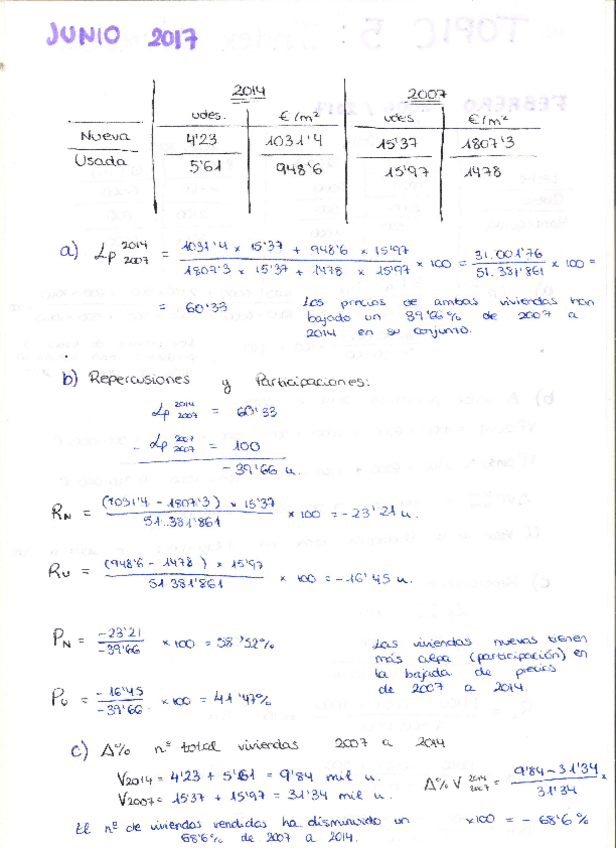 JUNIO 2017
2014 2007
udes. €/m² udes €/m²
Nueva 4'23 1031'4 15'37 1807'3
Usada 5'61 948'6 15'97 1478
a) Lp 2014 2007 = 1031'4 × 15'37 + 948'6 × 15'97 / 1807'3 × 15'37 + 1478 × 15'97 × 100 = 31.001'76 / 51.381'861 × 100 =
= 60'33 Los precios de ambas viviendas han
bajado un 39'66% de 2007 a
2014 en su conjunto.
b) Repercusiones y Participaciones:
Lp 2014 2007 = 60'33
- Lp 2007 2007 = 100
-39'66 u.
RN = (1031'4 - 1807'3) × 15'37 / 51.381'861 × 100 = -23'21 u.
RU = (948'6 - 1478) × 15'97 / 51.381'861 × 100 = -16'45 u.
PN = -23'21 / -39'66 × 100 = 58'52% Las viviendas nuevas tienen
más culpa (participación) en
la bajada de precios
de 2007 a 2014.
PU = -16'45 / -39'66 × 100 = 41'47%
c) Δ% nº total viviendas 2007 a 2014
V2014 = 4'23 + 5'61 = 9'84 mil u. Δ% V 2014 2007 = 9'84 - 31'34 / 31'34 ×
V2007 = 15'37 + 15'97 = 31'34 mil u.
El nº de viviendas vendidas ha disminuido un ×100 = -68'6%
68'6% de 2007 a 2014.